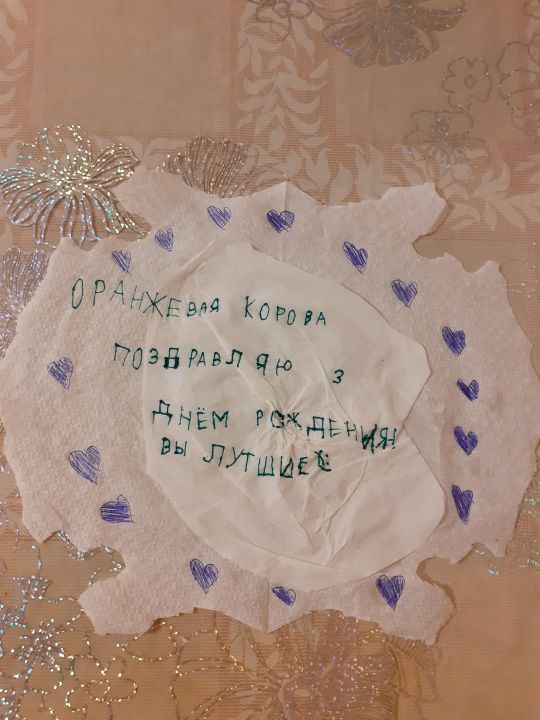 ОРАНЖЕВАЯ КОРОВА
ПОЗДРАВЛЯЮ З
ДНЁМ РОЖДЕНИЯ!
ВЫ ЛУТШИЕ